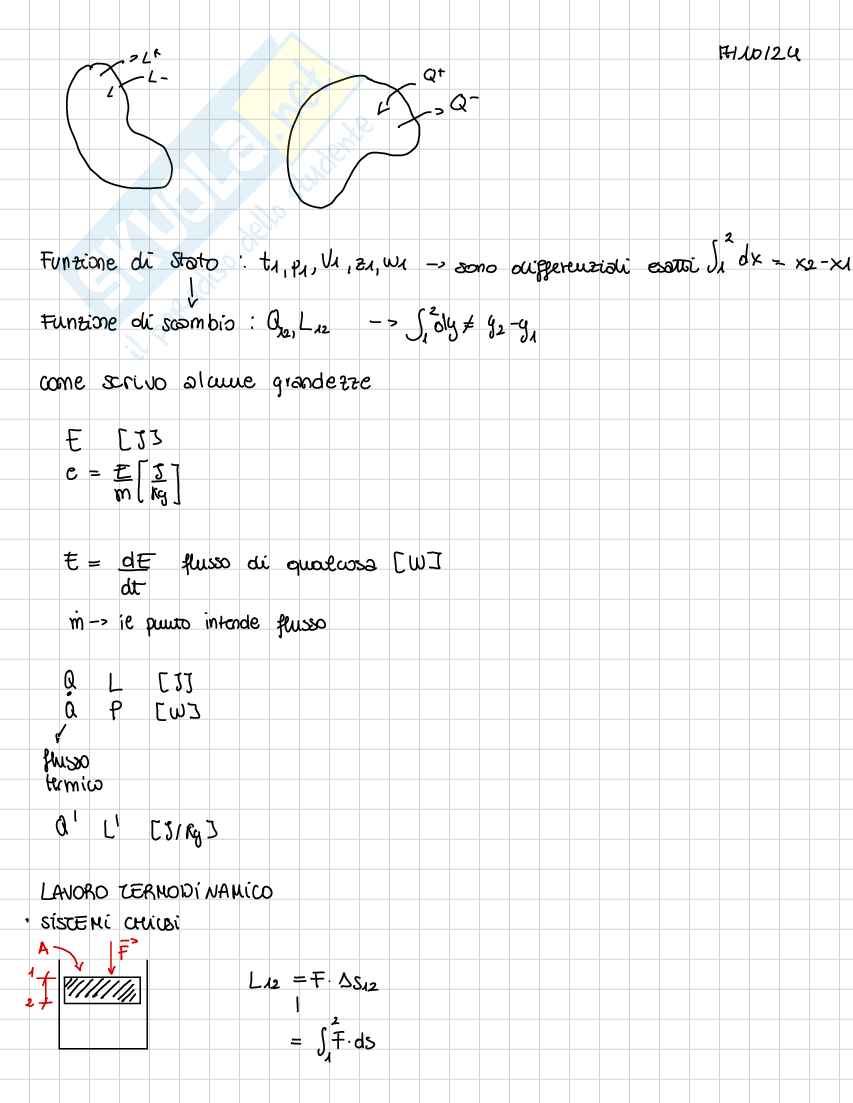 7/10/24
L+
L-
Q+
Q-
Funzione di Stato : t1, p1, V1, z1, w1 -> sono differenziali esatti ∫₁² dx = x2-x1
Funzione di scambio : Q12, L12 -> ∫₁² dy ≠ y2-y1
come scrivo alcune grandezze
E [J]
e = E/m [J/kg]
Ė = dE/dt flusso di qualcosa [W]
ṁ -> il punto intende flusso
Q L [J]
Q̇ P [W]
flusso
termico
Q' L' [J/kg]
LAVORO TERMODINAMICO
· SISTEMI CHIUSI
A F
1
2
L12 = F · ΔS12
= ∫₁² F · ds
SKUOLA.net
il paradiso dello studente